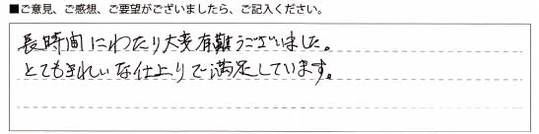 ■ご意見、ご感想、ご要望がございましたら、ご記入ください。
長時間にわたり大変有難うございました。
とてもきれいな仕上りで満足しています。